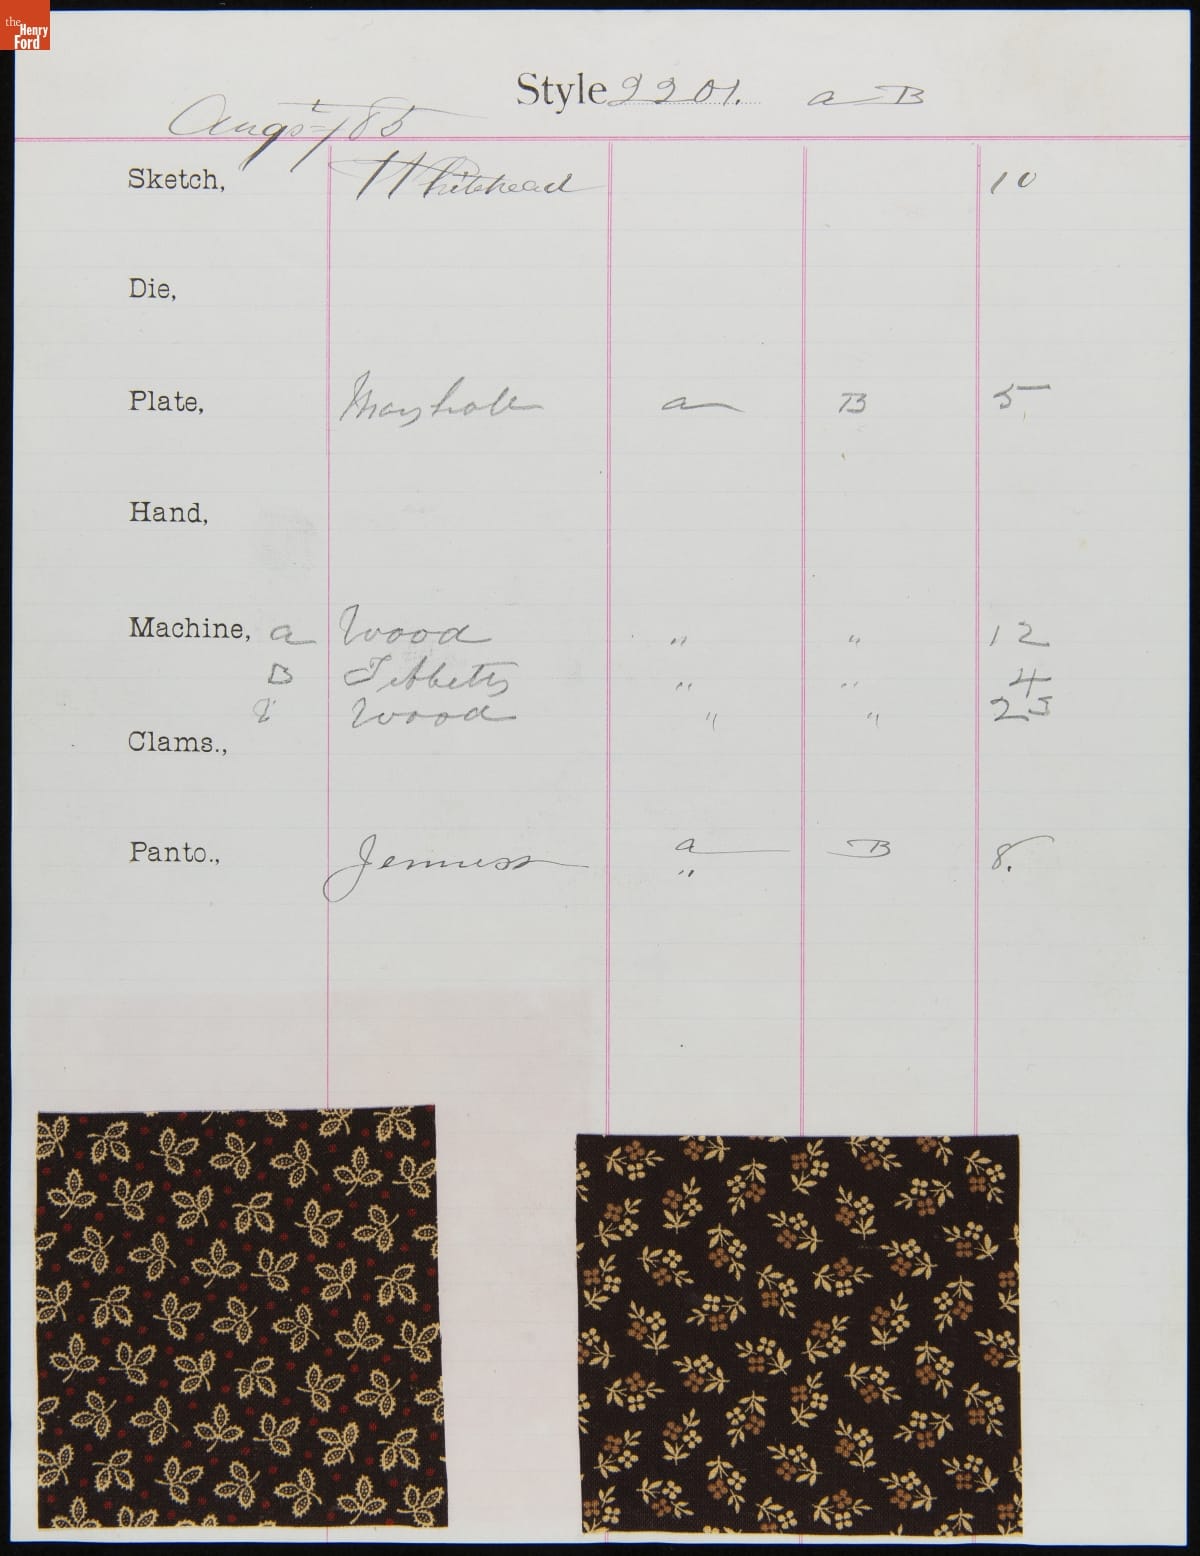 the Henry Ford
Style 2201. a B
Augst /85
Sketch, Whitehead 10
Die,
Plate, a B 5
Hand,
Machine, a Wood " " 12
B Tibbetts " " 4
Wood " " 25
Clams.,
Panto., Jenness a B 8.
"